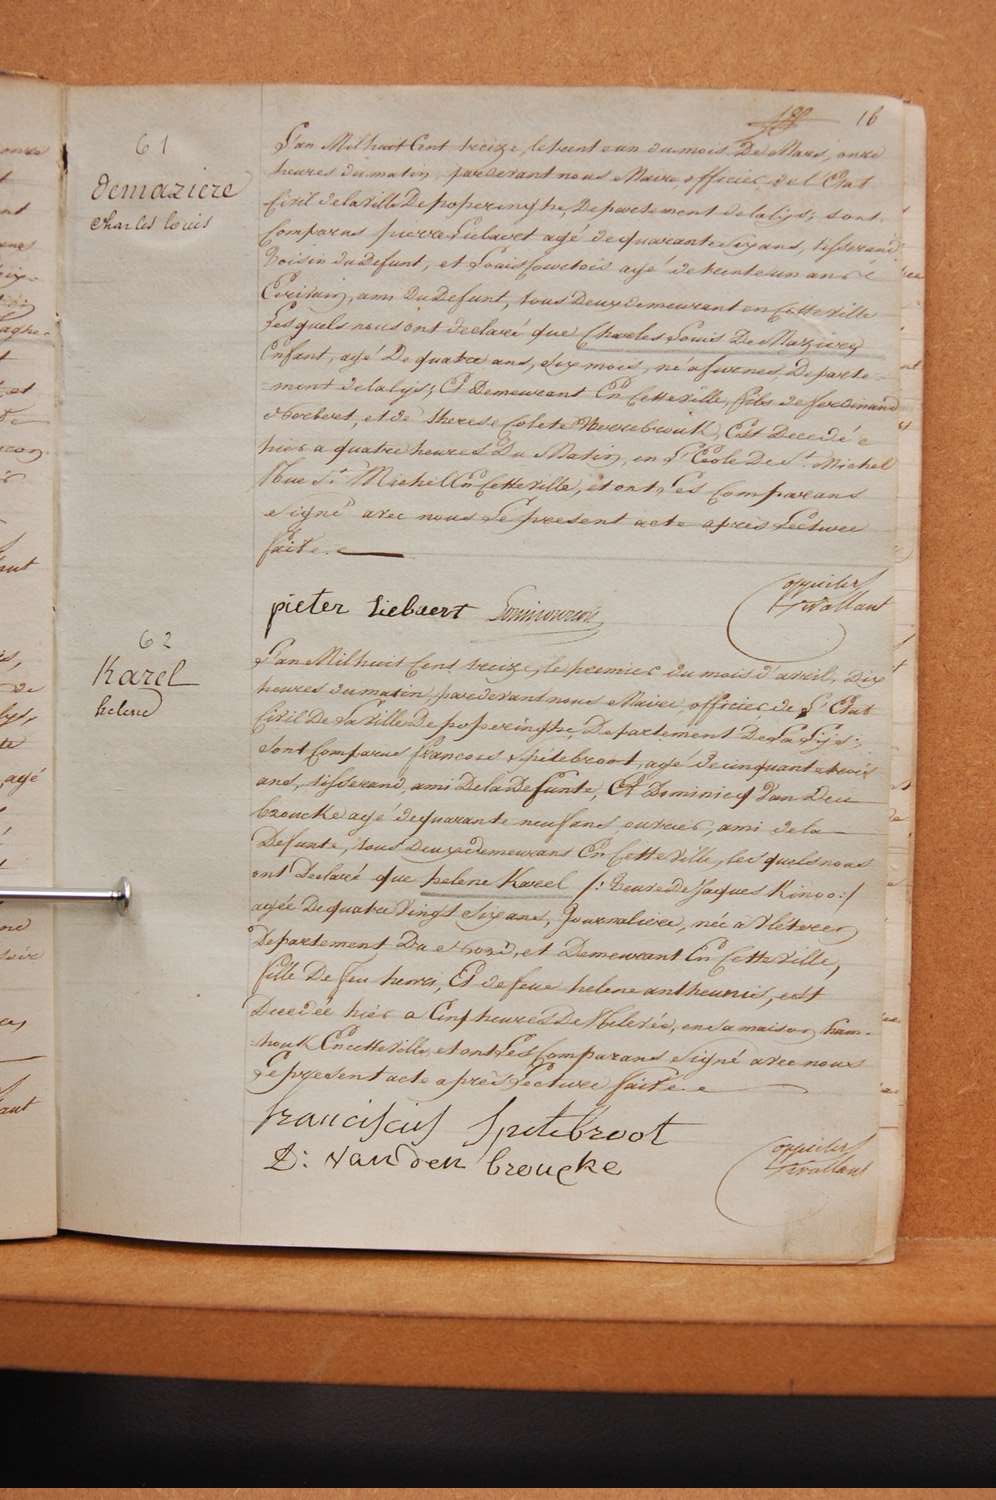 16
61
demaziere
Charles louis
L'an Mil huit Cent treize, le trent eun du mois De Mars, onze
heures du matin, pardevant nous Maire, officier de L'Etat
Civil de la Ville De poperinghe, Departement de la lys; sont
Comparus pierre Liebaert agé de quarante Six ans, tisserand
Voisin du Defunt, et Louis agé de trente un ans
Ecrivain, ami Du Defunt, tous Deux demeurant en Cette Ville
Lesquels nous ont declaré que Charles Louis De Maziere
Enfant, agé De quatre ans, Six mois, né a furnes, Departe-
-ment de la lys; Et Demeurant En Cette Ville, fils de ferdinand
Norbert, et de therese Colete Werrebrouck, Est Decedé
hier a quatre heures Du Matin, en L'Ecole De St. Michel
Rue St. Michel En Cette Ville, et ont Les Comparans
Signé avec nous Le present acte après Lecture
faite.
pieter Liebaert
62
Karel
helene
L'an Mil huit Cent treize, le premier du mois d'avril, Dix
heures du matin, pardevant nous Maire, officier de L'Etat
Civil De La Ville De poperinghe, Departement De La Lijs;
Sont Comparus francois Spitebroot, agé de cinquante trois
ans, tisserand, ami De la Defunte, Et Dominicq Van Den
broucke agé de quarante neuf ans, ouvrier, ami de la
Defunte, tous Deux demeurans En Cette Ville, les quels nous
ont Declaré que helene Karel /: Veuve De jaques Kinoo :/
agée De quatre Vingt Six ans, Journaliere, née a Vleteren
Departement Du Nord, et Demeurant En Cette Ville,
fille De feu henri, Et de feue helene antheunis, est
Decedée hier a Cinq heures De Relevée, en Sa maison, ham-
-houk En cette Ville, et ont Les Comparans Signé avec nous
Le present acte après Lecture faite.
franciscus Spitebroot
D: van den broucke